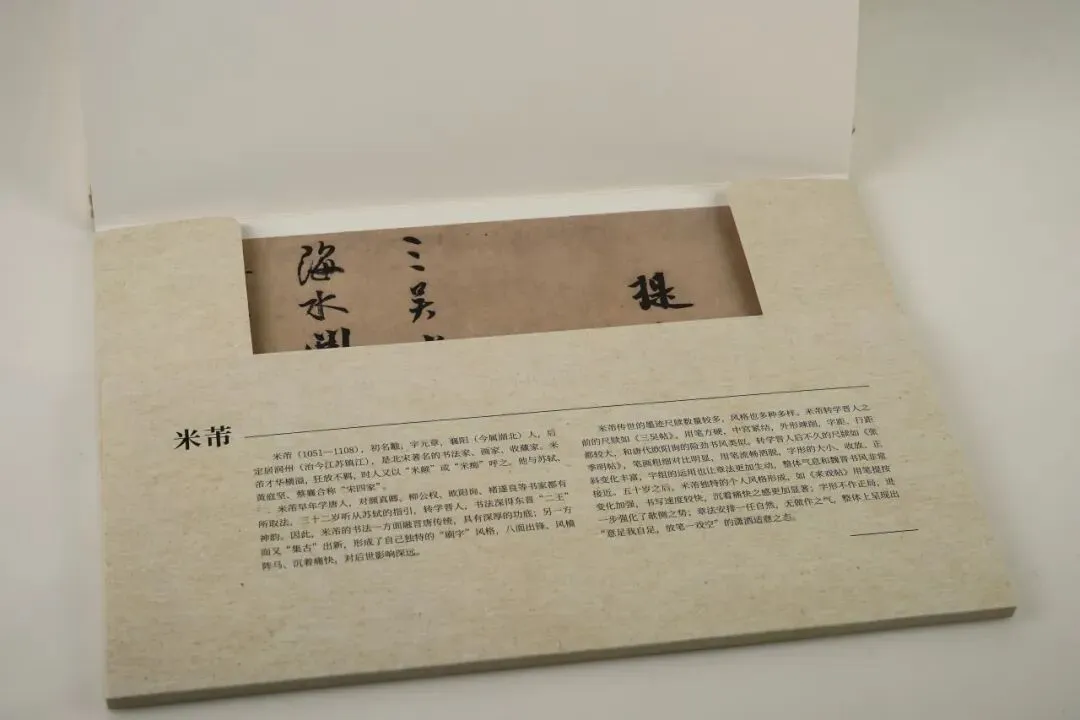 提
三吴
海水
米芾
米芾（1051—1108），初名黻，字元章，襄阳（今属湖北）人，后
定居润州（治今江苏镇江），是北宋著名的书法家、画家、收藏家。米
芾才华横溢，狂放不羁，时人又以“米颠”或“米痴”呼之。他与苏轼、
黄庭坚、蔡襄合称“宋四家”。
米芾早年学唐人，对颜真卿、柳公权、欧阳询、褚遂良等书家都有
所取法。三十二岁听从苏轼的指引，转学晋人，书法深得东晋“二王”
神韵。因此，米芾的书法一方面融晋唐传统，具有深厚的功底；另一方
面又“集古”出新，形成了自己独特的“刷字”风格，八面出锋，风樯
阵马、沉着痛快，对后世影响深远。
米芾传世的墨迹尺牍数量较多，风格也多种多样。米芾转学晋人之
前的尺牍如《三吴帖》，用笔方硬，中宫紧结，外形竦削，字距、行距
都较大，和唐代欧阳询的险劲书风类似。转学晋人后不久的尺牍如《张
季明帖》，笔画粗细对比明显，用笔流畅洒脱，字形的大小、收放、正
斜变化丰富，字组的运用也让章法更加生动，整体气息和魏晋书风非常
接近。五十岁之后，米芾独特的个人风格形成，如《来戏帖》用笔提按
变化加强，书写速度较快，沉着痛快之感更加显著；字形不作正局，进
一步强化了欹侧之势；章法安排一任自然，无做作之气，整体上呈现出
“意足我自足，放笔一戏空”的潇洒适意之态。